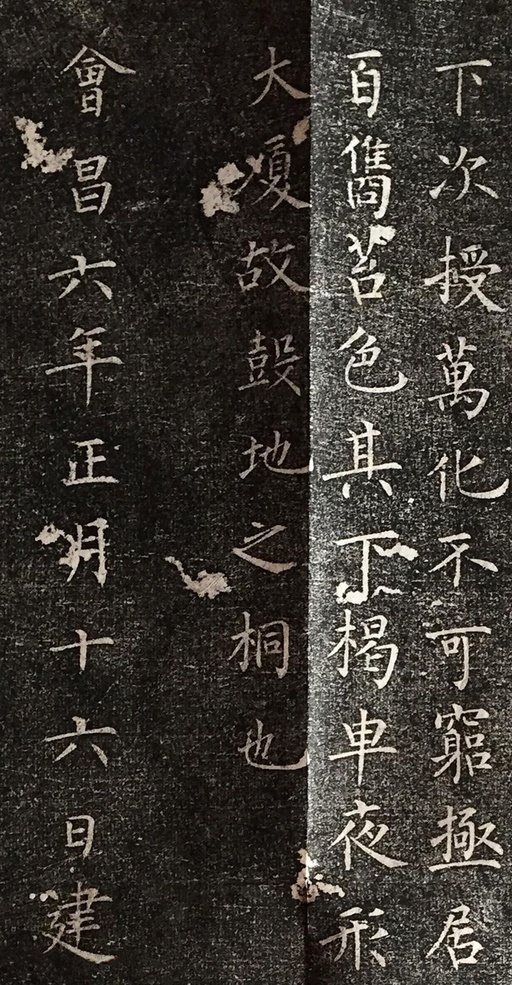 下次授萬化不可窮極居
百雋苔色其下楬車夜形
大廈故鼓地之桐也
會昌六年正月十六日建